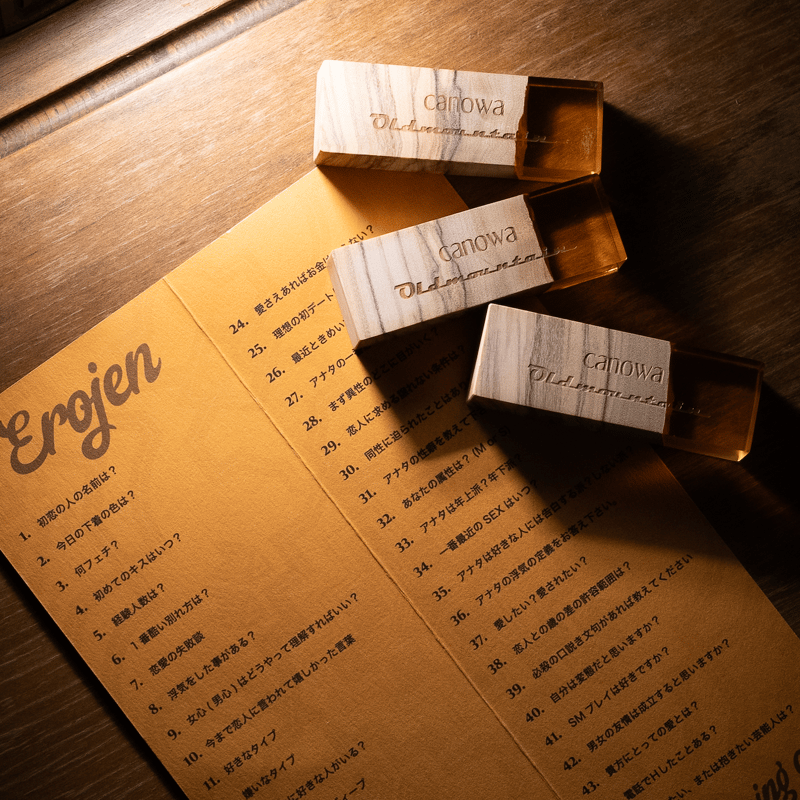 canowa
Oldmountain
canowa
Oldmountain
canowa
Oldmountain
Erojen
1. 初恋の人の名前は？
2. 今日の下着の色は？
3. 何フェチ？
4. 初めてのキスはいつ？
5. 経験人数は？
6. 1番酷い別れ方は？
7. 恋愛の失敗談
8. 浮気をした事がある？
9. 女心(男心)はどうやって理解すればいい？
10. 今まで恋人に言われて嬉しかった言葉
11. 好きなタイプ
嫌いなタイプ
に好きな人がいる？
ィープ
24. 愛さえあればお金は
ない？
25. 理想の初デート
26. 最近ときめい
27. アナタの一
28. まず異性の
29. 恋人に求め
れない条件は？
30. 同性に迫られたことはあ
31. アナタの性癖を教えて
32. あなたの属性は？(M or
33. アナタは年上派？年下派？
34. 一番最近の SEX はいつ？
35. アナタは好きな人には告白する派？しない
36. アナタの浮気の定義をお答え下さい。
37. 愛したい？愛されたい？
38. 恋人との歳の差の許容範囲は？
39. 必殺の口説き文句があれば教えてください
40. 自分は変態だと思いますか？
41. SMプレイは好きですか？
42. 男女の友情は成立すると思いますか？
43. 貴方にとっての愛とは？
電話でHしたことある？
たい、または抱きたい芸能人は？
ing